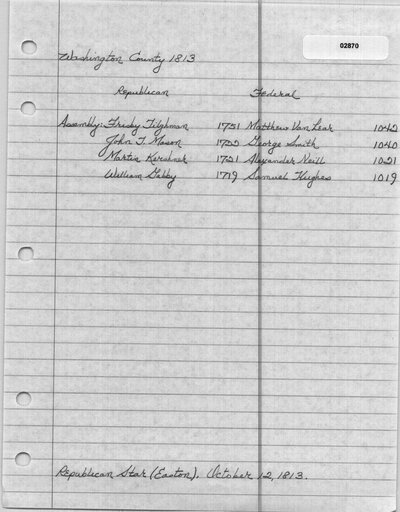 02870
Washington County 1813
Republican Federal
Assembly: Frisby Tilghman 1751 Matthew Van Lear 1042
John T. Mason George Smith 1040
Martin Kershner 1721 Alexander Neill 1021
William Gabby 1719 Samuel Hughes 1019
Republican Star (Easton). October 12, 1813.